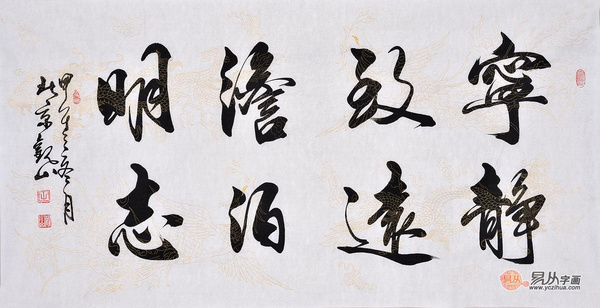 寧静
致遠
澹泊
明志
甲午之冬月
北京观山
易从字画
www.yczihua.com